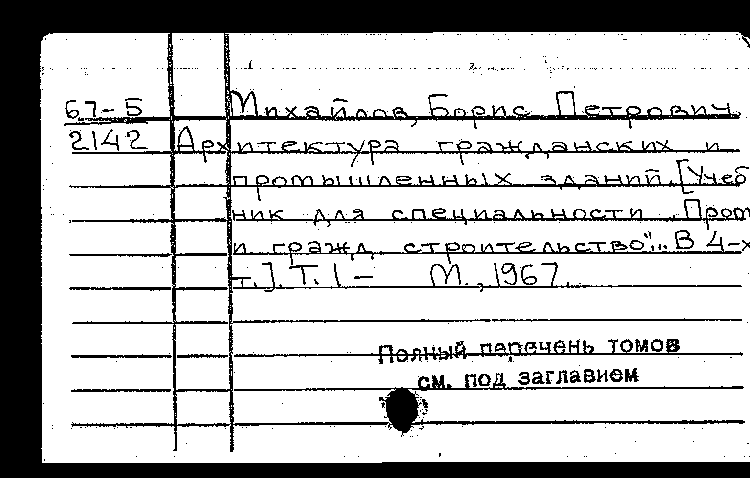 67-5
2142
Михайлов, Борис Петрович.
Архитектура гражданских и
промышленных зданий. [Учеб
ник для специальности „Пром
и гражд. строительство"... В 4-х
т.]. Т. 1 - М., 1967.
Полный перечень томов
см. под заглавием